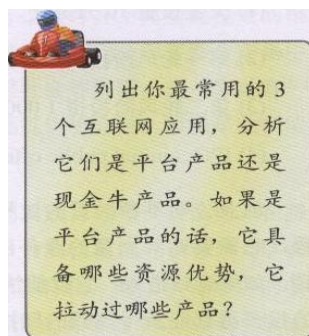 列出你最常用的3
个互联网应用，分析
它们是平台产品还是
现金牛产品。如果是
平台产品的话，它具
备哪些资源优势，它
拉动过哪些产品？